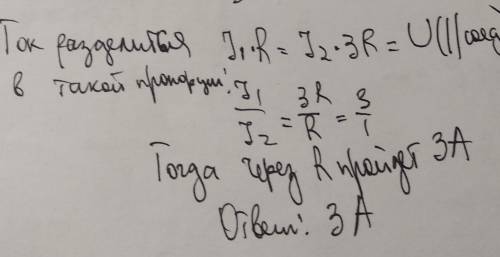 Ток разделится J₁·R = J₂·3R = U(||соед
в такой пропорции:
J₁/J₂ = 3R/R = 3/1
Тогда через R пройдет 3А
Ответ: 3А